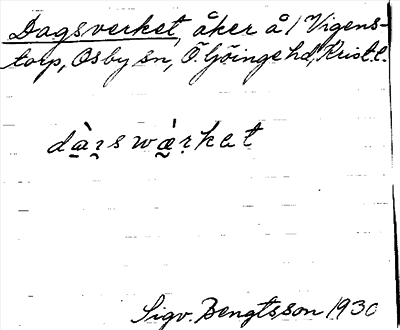 Dagsverket, åker å 1 Vigens-
torp, Osby sn, Ö. Göinge hd, Krist. l.
dà̱ʀ̨s wæ̱̀ʀ̣kat
Sigv. Bengtsson 1930